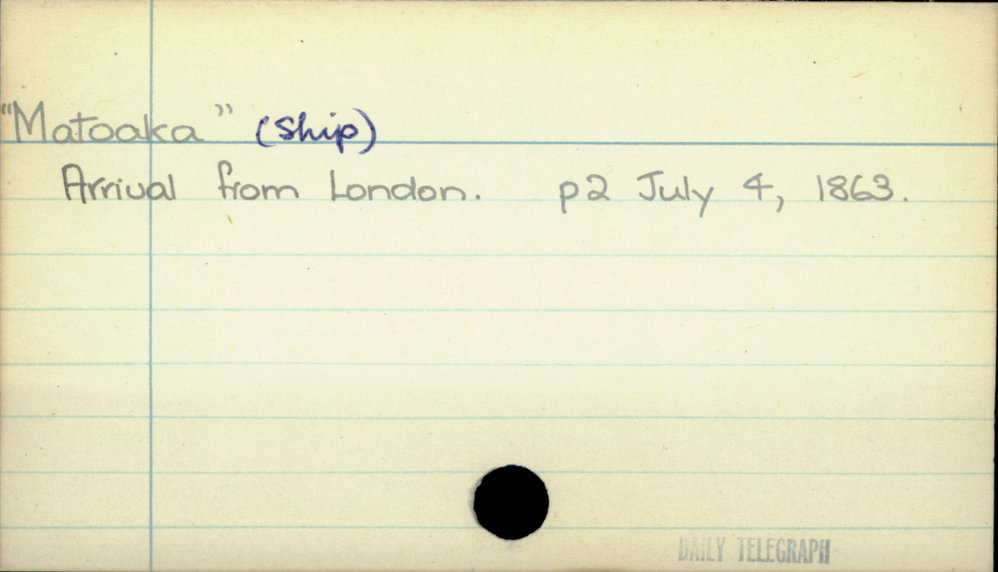 "Matoaka" (Ship)
Arrival from London. p2 July 4, 1863.
DAILY TELEGRAPH